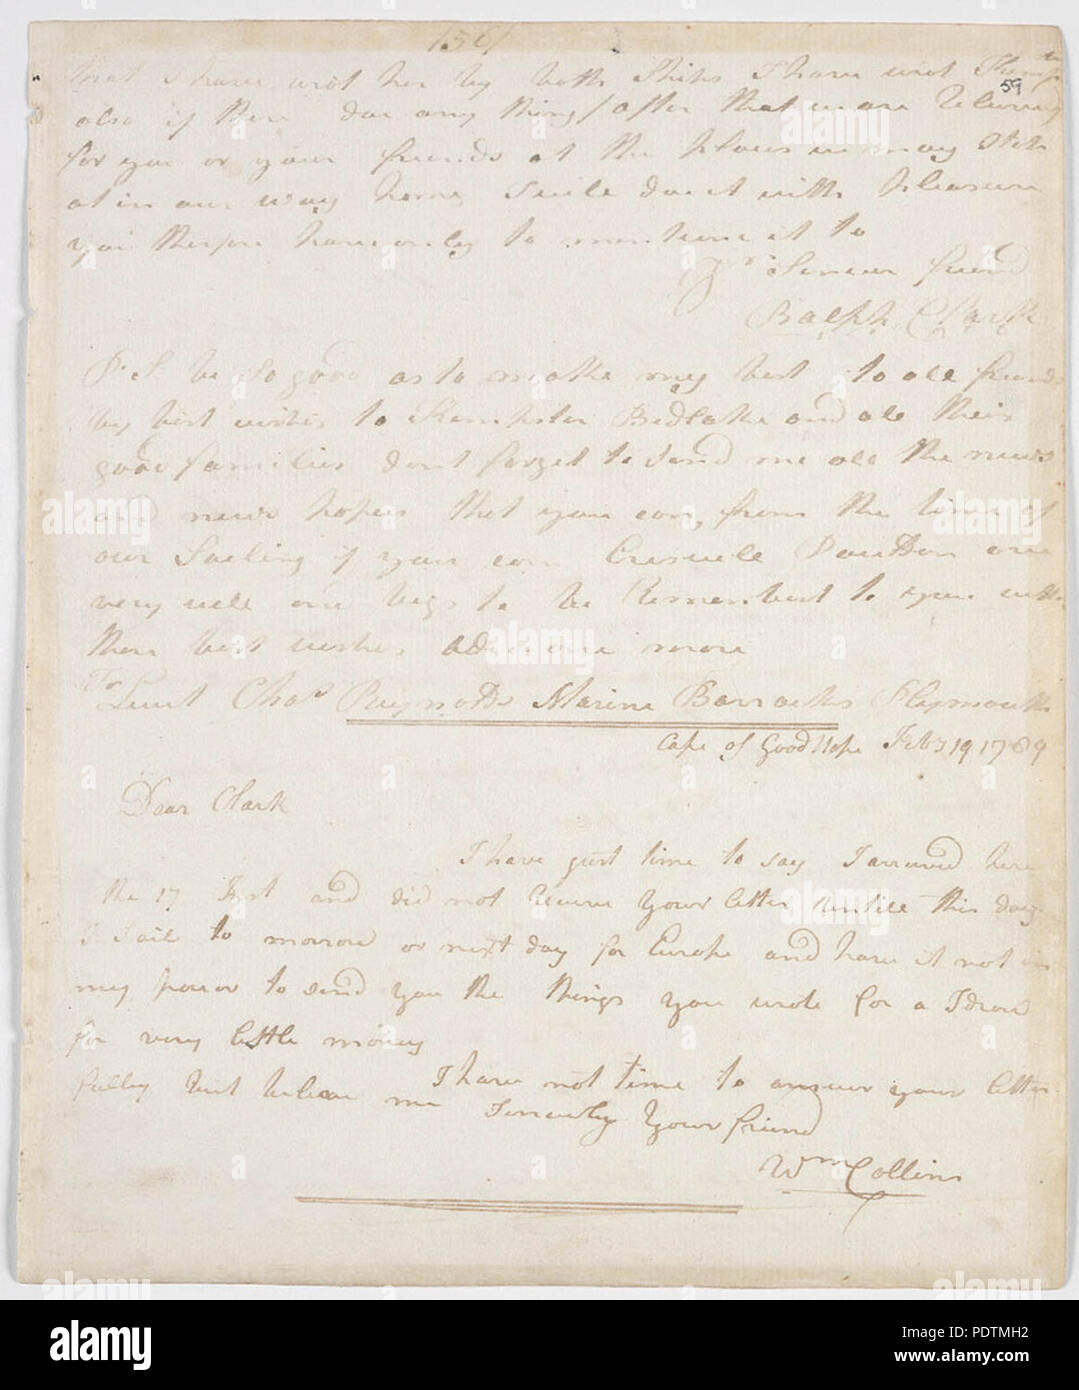 that I have wrot her by both Ships I have wrot
59
also if there
for you or your friends at the
at in our way home I will doe it with pleasure
you therfor have only to mention it to
Yr Sincer friend
Ralph Clark
P.S. be So good as to make my best to all friends
my best wishes to Kempster Bedlake and all their
good families dont forget to Send me all the news
and news papers that you can from the time of
our Sailing if you can Creswell Poulden are
very well and begs to be Remembert to you with
there best wishes adue once more
To
Lieut Chas Reynolds Marine Barracks Plymouth
Cape of Good Hope Feby 19 1789
Dear Clark
I have just time to say I arrived here
the 17 Inst and did not receive your letter untill this day
I Sail to morrow or next day for Europe and have it not in
my power to send you the things you wrote for a I
for very little money
I have not time to answer your letter
fully but beleive me Sincerely Your friend
Wm Collins
alamy
Image ID: PDTMH2
www.alamy.com